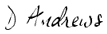 D Andrews